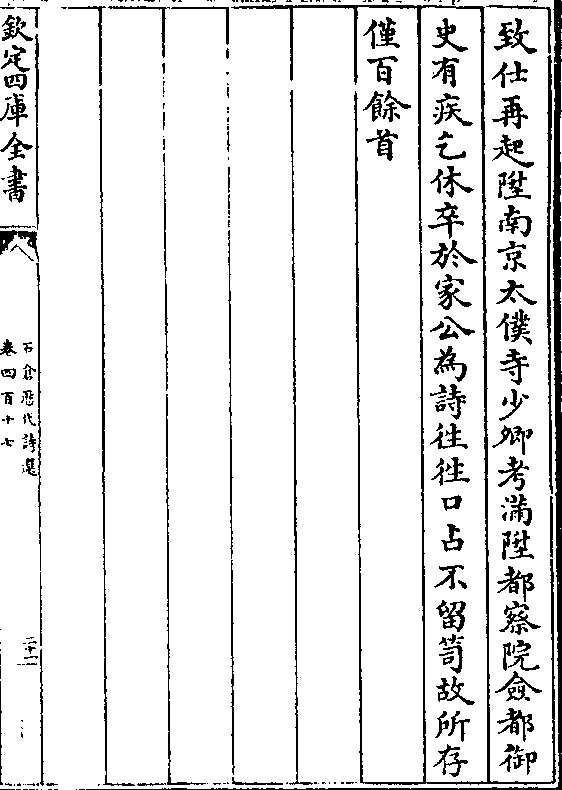 致仕再起陞南京太僕寺少卿考滿陞都察院僉都御
史有疾乞休卒於家公為詩徃徃口占不留笥故所存
僅百餘首
欽定四庫全書
石倉歷代詩選
卷四百十七
二十一